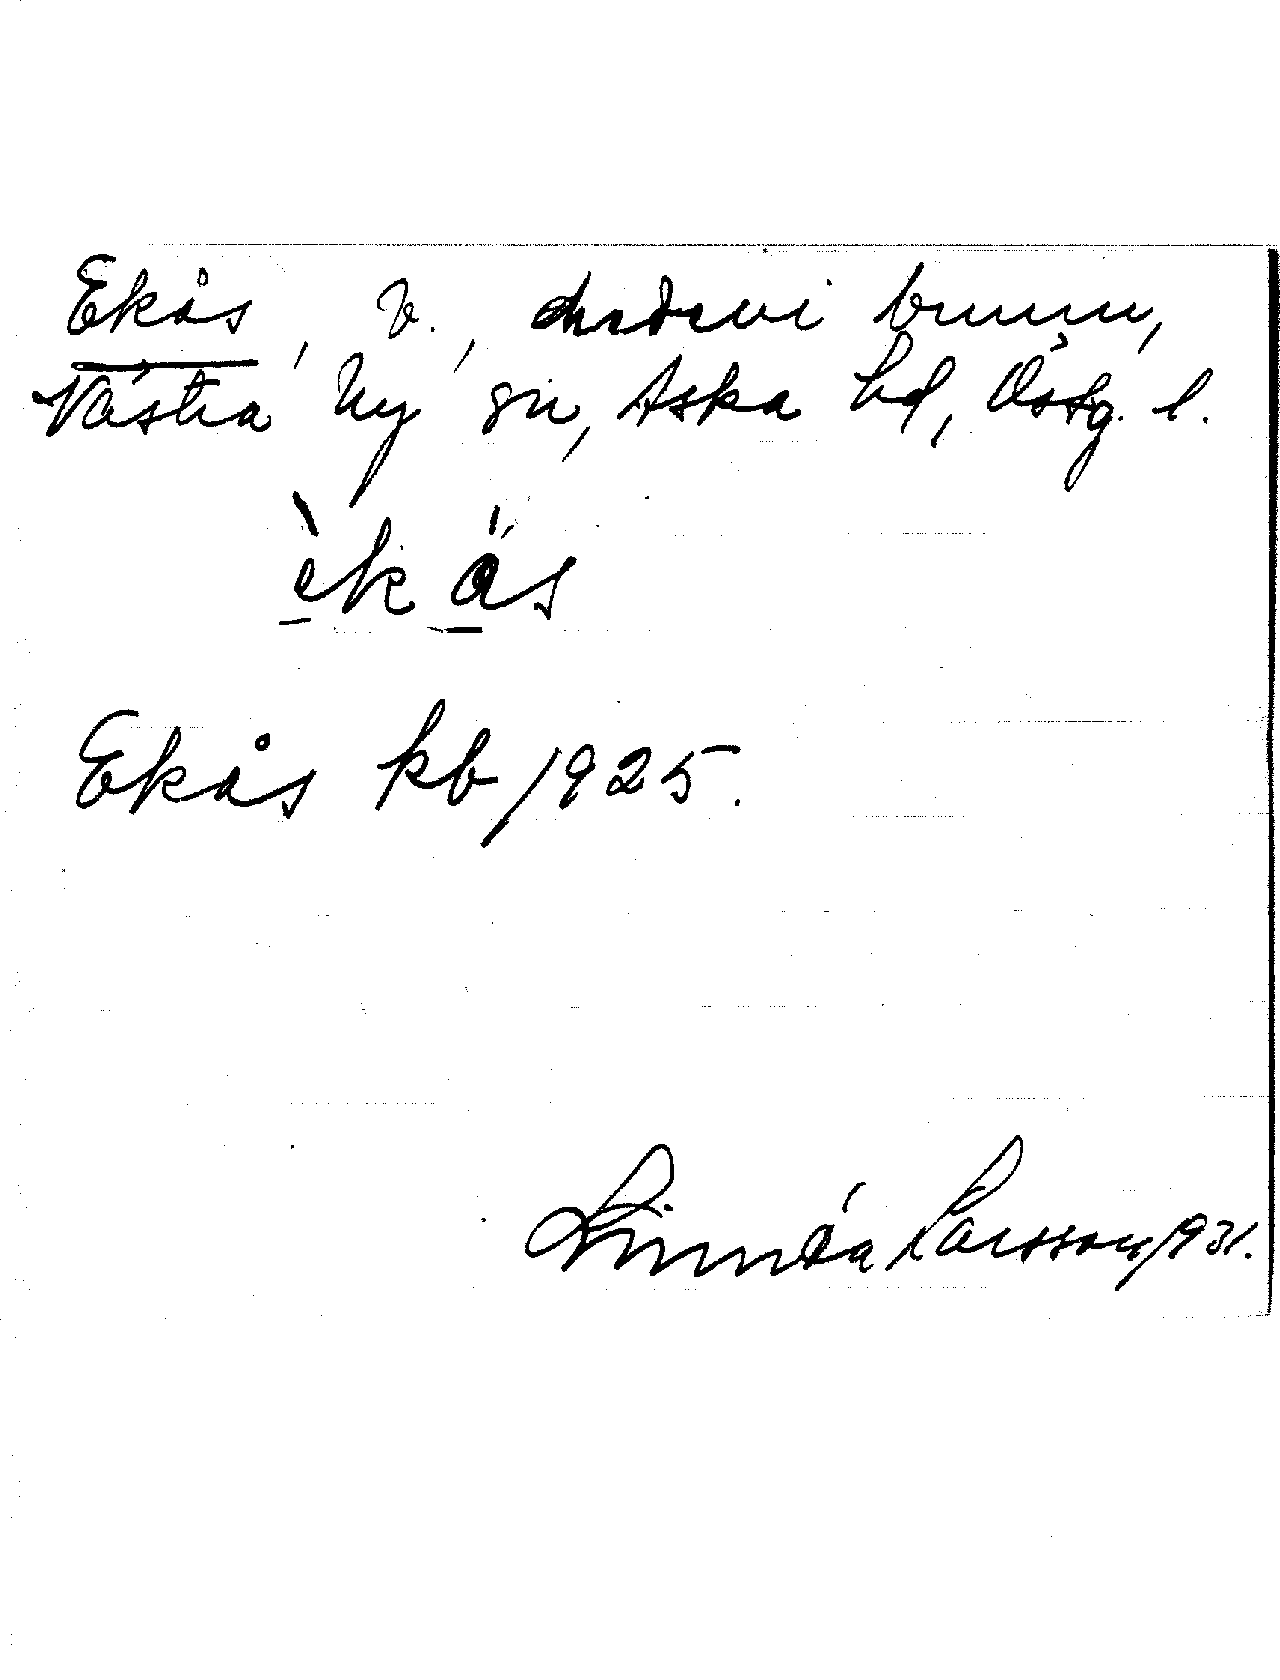 Ekås, v., Medevi brunn,
Västra Ny sn, Aska hd, Östg. l.
èk ás
Ekås kb 1925.
Linnéa Larsson 1931.